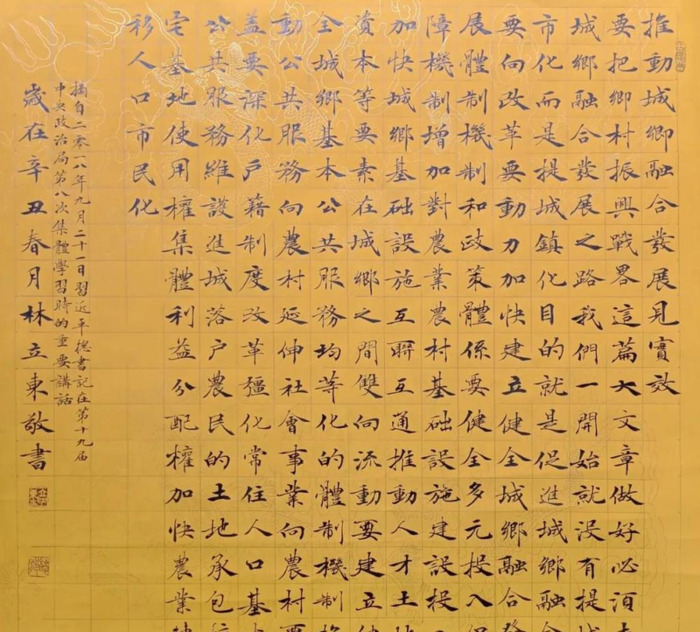 推動城鄉融合發展見實效
要把鄉村振興戰畧這篇大文章做好必須
城鄉融合發展之路我們一開始就沒有提城
市化而是提城鎮化目的就是促進城鄉融合
要向改革要動力加快建立健全城鄉融合發
展體制機制和政策體係要健全多元投入保
障機制增加對農業農村基础設施建設投
加快城鄉基础設施互聯互通推動人才土地
資本等要素在城鄉之間雙向流動要建立健
全城鄉基本公共服務均等化的體制機制推
動公共服務向農村延伸社會事業向農村
盖要深化户籍制度改革彊化常住人口基本
公共服務維護進城落户農民的土地承包
宅基地使用權集體利益分配權加快農業
移人口市民化
摘自二零一八年九月二十一日習近平總書記在第十九届
中央政治局第八次集體學習時的重要講話
歲在辛丑春月林立東敬書